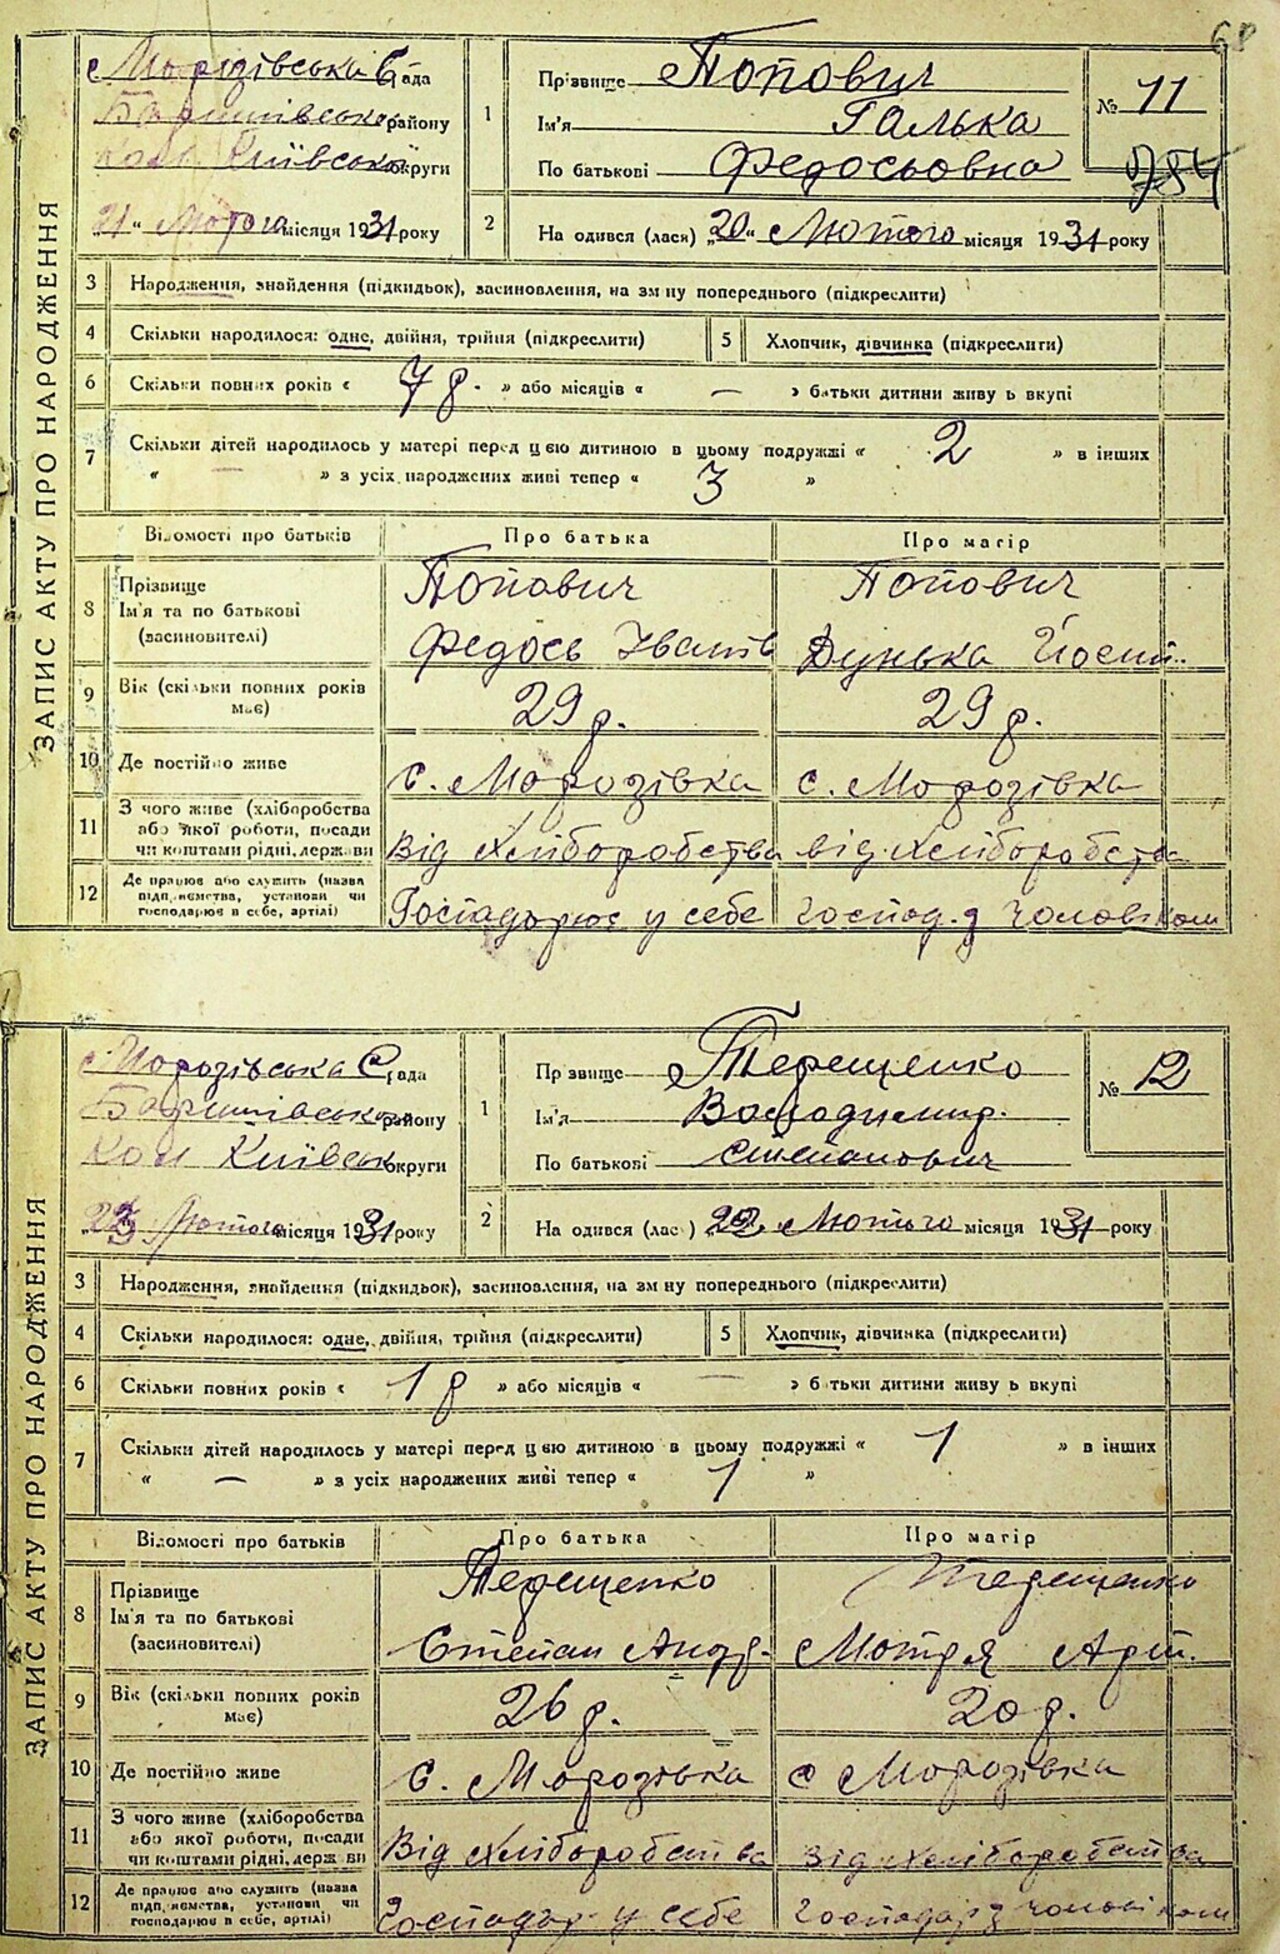 68
ЗАПИС АКТУ ПРО НАРОДЖЕННЯ
Морозівська С рада
Баришівського району
Київської округи
„21“ Лютого місяця 1931 року
1
Прізвище Попович
Ім'я Галька
По батькові Федосьовна
№ 11
2
На одився (лася) „20“ Лютого місяця 1931 року
3 Народження, знайдення (підкидьок), засиновлення, на зм ну попереднього (підкреслити)
4 Скільки народилося: одне, двійня, трійня (підкреслити) 5 Хлопчик, дівчинка (підкреслити)
6 Скільки повних років « 7 р. » або місяців « — » батьки дитини живу ь вкупі
7 Скільки дітей народилось у матері перед цею дитиною в цьому подружжі « 2 » в інших
« — » з усіх народжених живі тепер « 3 »
Відомості про батьків Про батька Про матір
8 Прізвище Попович Попович
Ім'я та по батькові
(засиновителі) Федось Іванів Дунька Йосип.
9 Вік (скільки повних років має) 29 р. 29 р.
10 Де постійно живе с. Морозівка с. Морозівка
11 З чого живе (хліборобства
або якої роботи, посади
чи коштами рідні, держави Від хліборобства від хліборобства
12 Де працює або служить (назва
підп.иємства, установи чи
господарює в себе, артілі) Господарює у себе господ. з чоловіком
ЗАПИС АКТУ ПРО НАРОДЖЕННЯ
Морозівська С рада
Баришівського району
Київської округи
23 Лютого місяця 1931 року
1
Пр звище Терещенко
Ім'я Володимир.
По батькові Степанович
№ 12
2
На одився (лас ) „22“ Лютого місяця 1931 року
3 Народження, знайдення (підкидьок), засиновлення, на зм ну попереднього (підкреслити)
4 Скільки народилося: одне, двійня, трійня (підкреслити) 5 Хлопчик, дівчинка (підкреслити)
6 Скільки повних років « 1 р » або місяців « — » б тьки дитини живу ь вкупі
7 Скільки дітей народилось у матері перед цею дитиною в цьому подружжі « 1 » в інших
« — » з усіх народжених живі тепер « 1 »
Відомості про батьків Про батька Про матір
8 Прізвище Терещенко Терещенко
Ім'я та по батькові
(засиновителі) Степан Андр. Мотря Арт.
9 Вік (скільки повних років має) 26 р. 20 р.
10 Де постійно живе с. Морозівка с Морозівка
11 З чого живе (хліборобства
або якої роботи, посади
чи коштами рідні, держ ви Від хліборобства від хліборобства
12 Де працює або служить (назва
підп.иємства, установи чи
господарює в себе, артілі) Господар. у себе господар з чоловіком